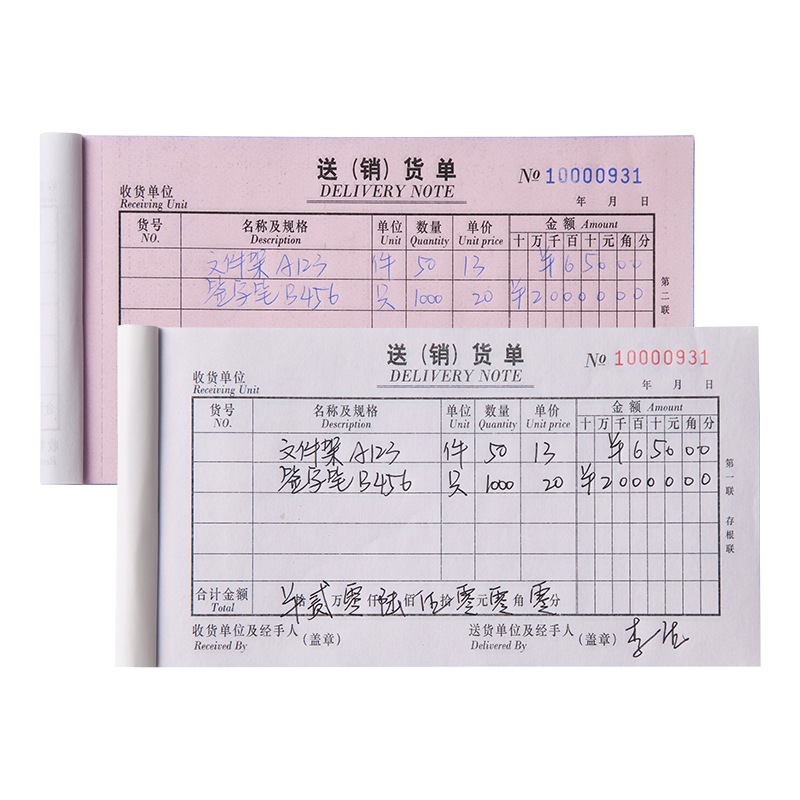 送（销）货单
DELIVERY NOTE
№ 10000931
收货单位
Receiving Unit
年 月 日
货号 名称及规格 单位 数量 单价 金额 Amount
NO. Description Unit Quantity Unit price 十 万 千 百 十 元 角 分
文件架 A123 件 50 13 ¥ 6 5 0 0 0
签字笔 B456 只 1000 20 ¥ 2 0 0 0 0 0 0
第二联
送（销）货单
DELIVERY NOTE
№ 10000931
收货单位
Receiving Unit
年 月 日
货号 名称及规格 单位 数量 单价 金额 Amount
NO. Description Unit Quantity Unit price 十 万 千 百 十 元 角 分
文件架 A123 件 50 13 ¥ 6 5 0 0 0
签字笔 B456 只 1000 20 ¥ 2 0 0 0 0 0 0
第一联 存根联
合计金额 拾贰万零仟陆佰伍拾零元零角零分
Total
收货单位及经手人（盖章） 送货单位及经手人（盖章）
Received By Delivered By